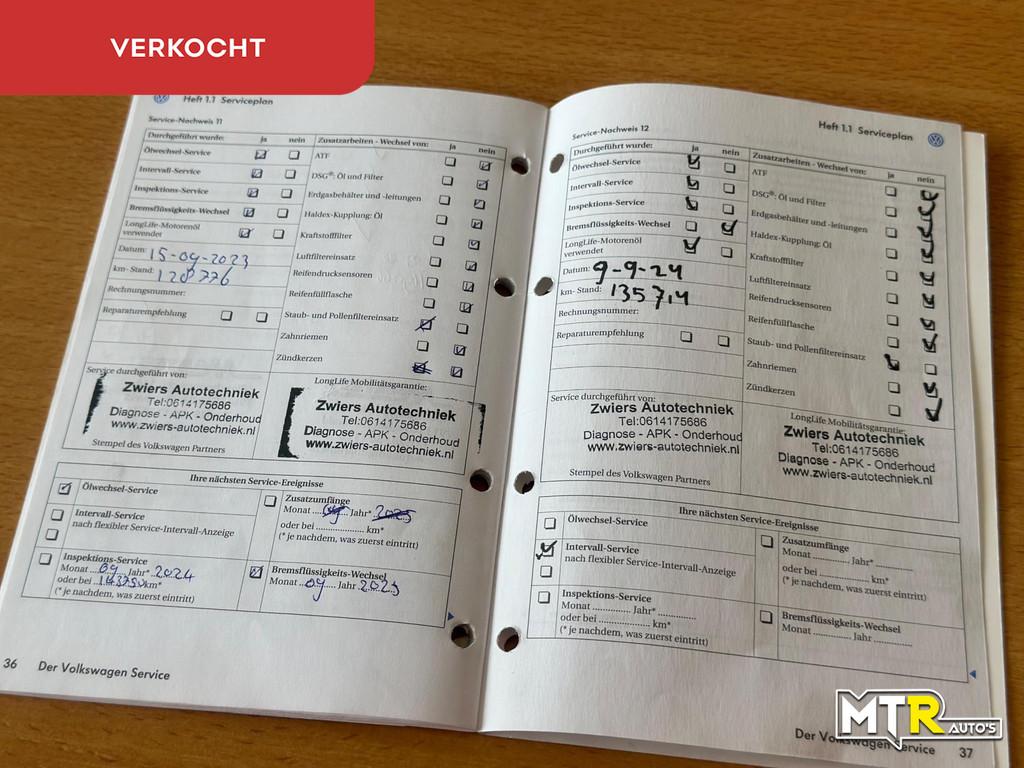 VERKOCHT
Heft 1.1 Serviceplan
Service-Nachweis 11
Durchgeführt wurde: ja nein
Ölwechsel-Service
Intervall-Service
Inspektions-Service
Bremsflüssigkeits-Wechsel
LongLife-Motorenöl
verwendet
Datum: 15-09-2023
km- Stand: 128776
Rechnungsnummer:
Reparaturempfehlung
Zusatzarbeiten - Wechsel von: ja nein
ATF
DSG®: Öl und Filter
Erdgasbehälter und -leitungen
Haldex-Kupplung: Öl
Kraftstofffilter
Luftfiltereinsatz
Reifendrucksensoren
Reifenfüllflasche
Staub- und Pollenfiltereinsatz
Zahnriemen
Zündkerzen
Service durchgeführt von:
Zwiers Autotechniek
Tel:0614175686
Diagnose - APK - Onderhoud
www.zwiers-autotechniek.nl
Stempel des Volkswagen Partners
LongLife Mobilitätsgarantie:
Zwiers Autotechniek
Tel:0614175686
Diagnose - APK - Onderhoud
www.zwiers-autotechniek.nl
Ihre nächsten Service-Ereignisse
Ölwechsel-Service
Intervall-Service
nach flexibler Service-Intervall-Anzeige
Inspektions-Service
Monat 09 Jahr* 2024
oder bei 143750 km*
(* je nachdem, was zuerst eintritt)
Zusatzumfänge
Monat 09 Jahr* 2025
oder bei .................. km*
(* je nachdem, was zuerst eintritt)
Bremsflüssigkeits-Wechsel
Monat 09 Jahr 2025
36 Der Volkswagen Service
Heft 1.1 Serviceplan
Service-Nachweis 12
Durchgeführt wurde: ja nein
Ölwechsel-Service
Intervall-Service
Inspektions-Service
Bremsflüssigkeits-Wechsel
LongLife-Motorenöl
verwendet
Datum: 9-9-24
km- Stand: 135714
Rechnungsnummer:
Reparaturempfehlung
Zusatzarbeiten - Wechsel von: ja nein
ATF
DSG®: Öl und Filter
Erdgasbehälter und -leitungen
Haldex-Kupplung: Öl
Kraftstofffilter
Luftfiltereinsatz
Reifendrucksensoren
Reifenfüllflasche
Staub- und Pollenfiltereinsatz
Zahnriemen
Zündkerzen
Service durchgeführt von:
Zwiers Autotechniek
Tel:0614175686
Diagnose - APK - Onderhoud
www.zwiers-autotechniek.nl
Stempel des Volkswagen Partners
LongLife Mobilitätsgarantie:
Zwiers Autotechniek
Tel:0614175686
Diagnose - APK - Onderhoud
www.zwiers-autotechniek.nl
Ihre nächsten Service-Ereignisse
Ölwechsel-Service
Intervall-Service
nach flexibler Service-Intervall-Anzeige
Inspektions-Service
Monat ............ Jahr* ............
oder bei .................. km*
(* je nachdem, was zuerst eintritt)
Zusatzumfänge
Monat ............ Jahr* ............
oder bei .................. km*
(* je nachdem, was zuerst eintritt)
Bremsflüssigkeits-Wechsel
Monat ............ Jahr ............
Der Volkswagen Service 37
MTR AUTO'S